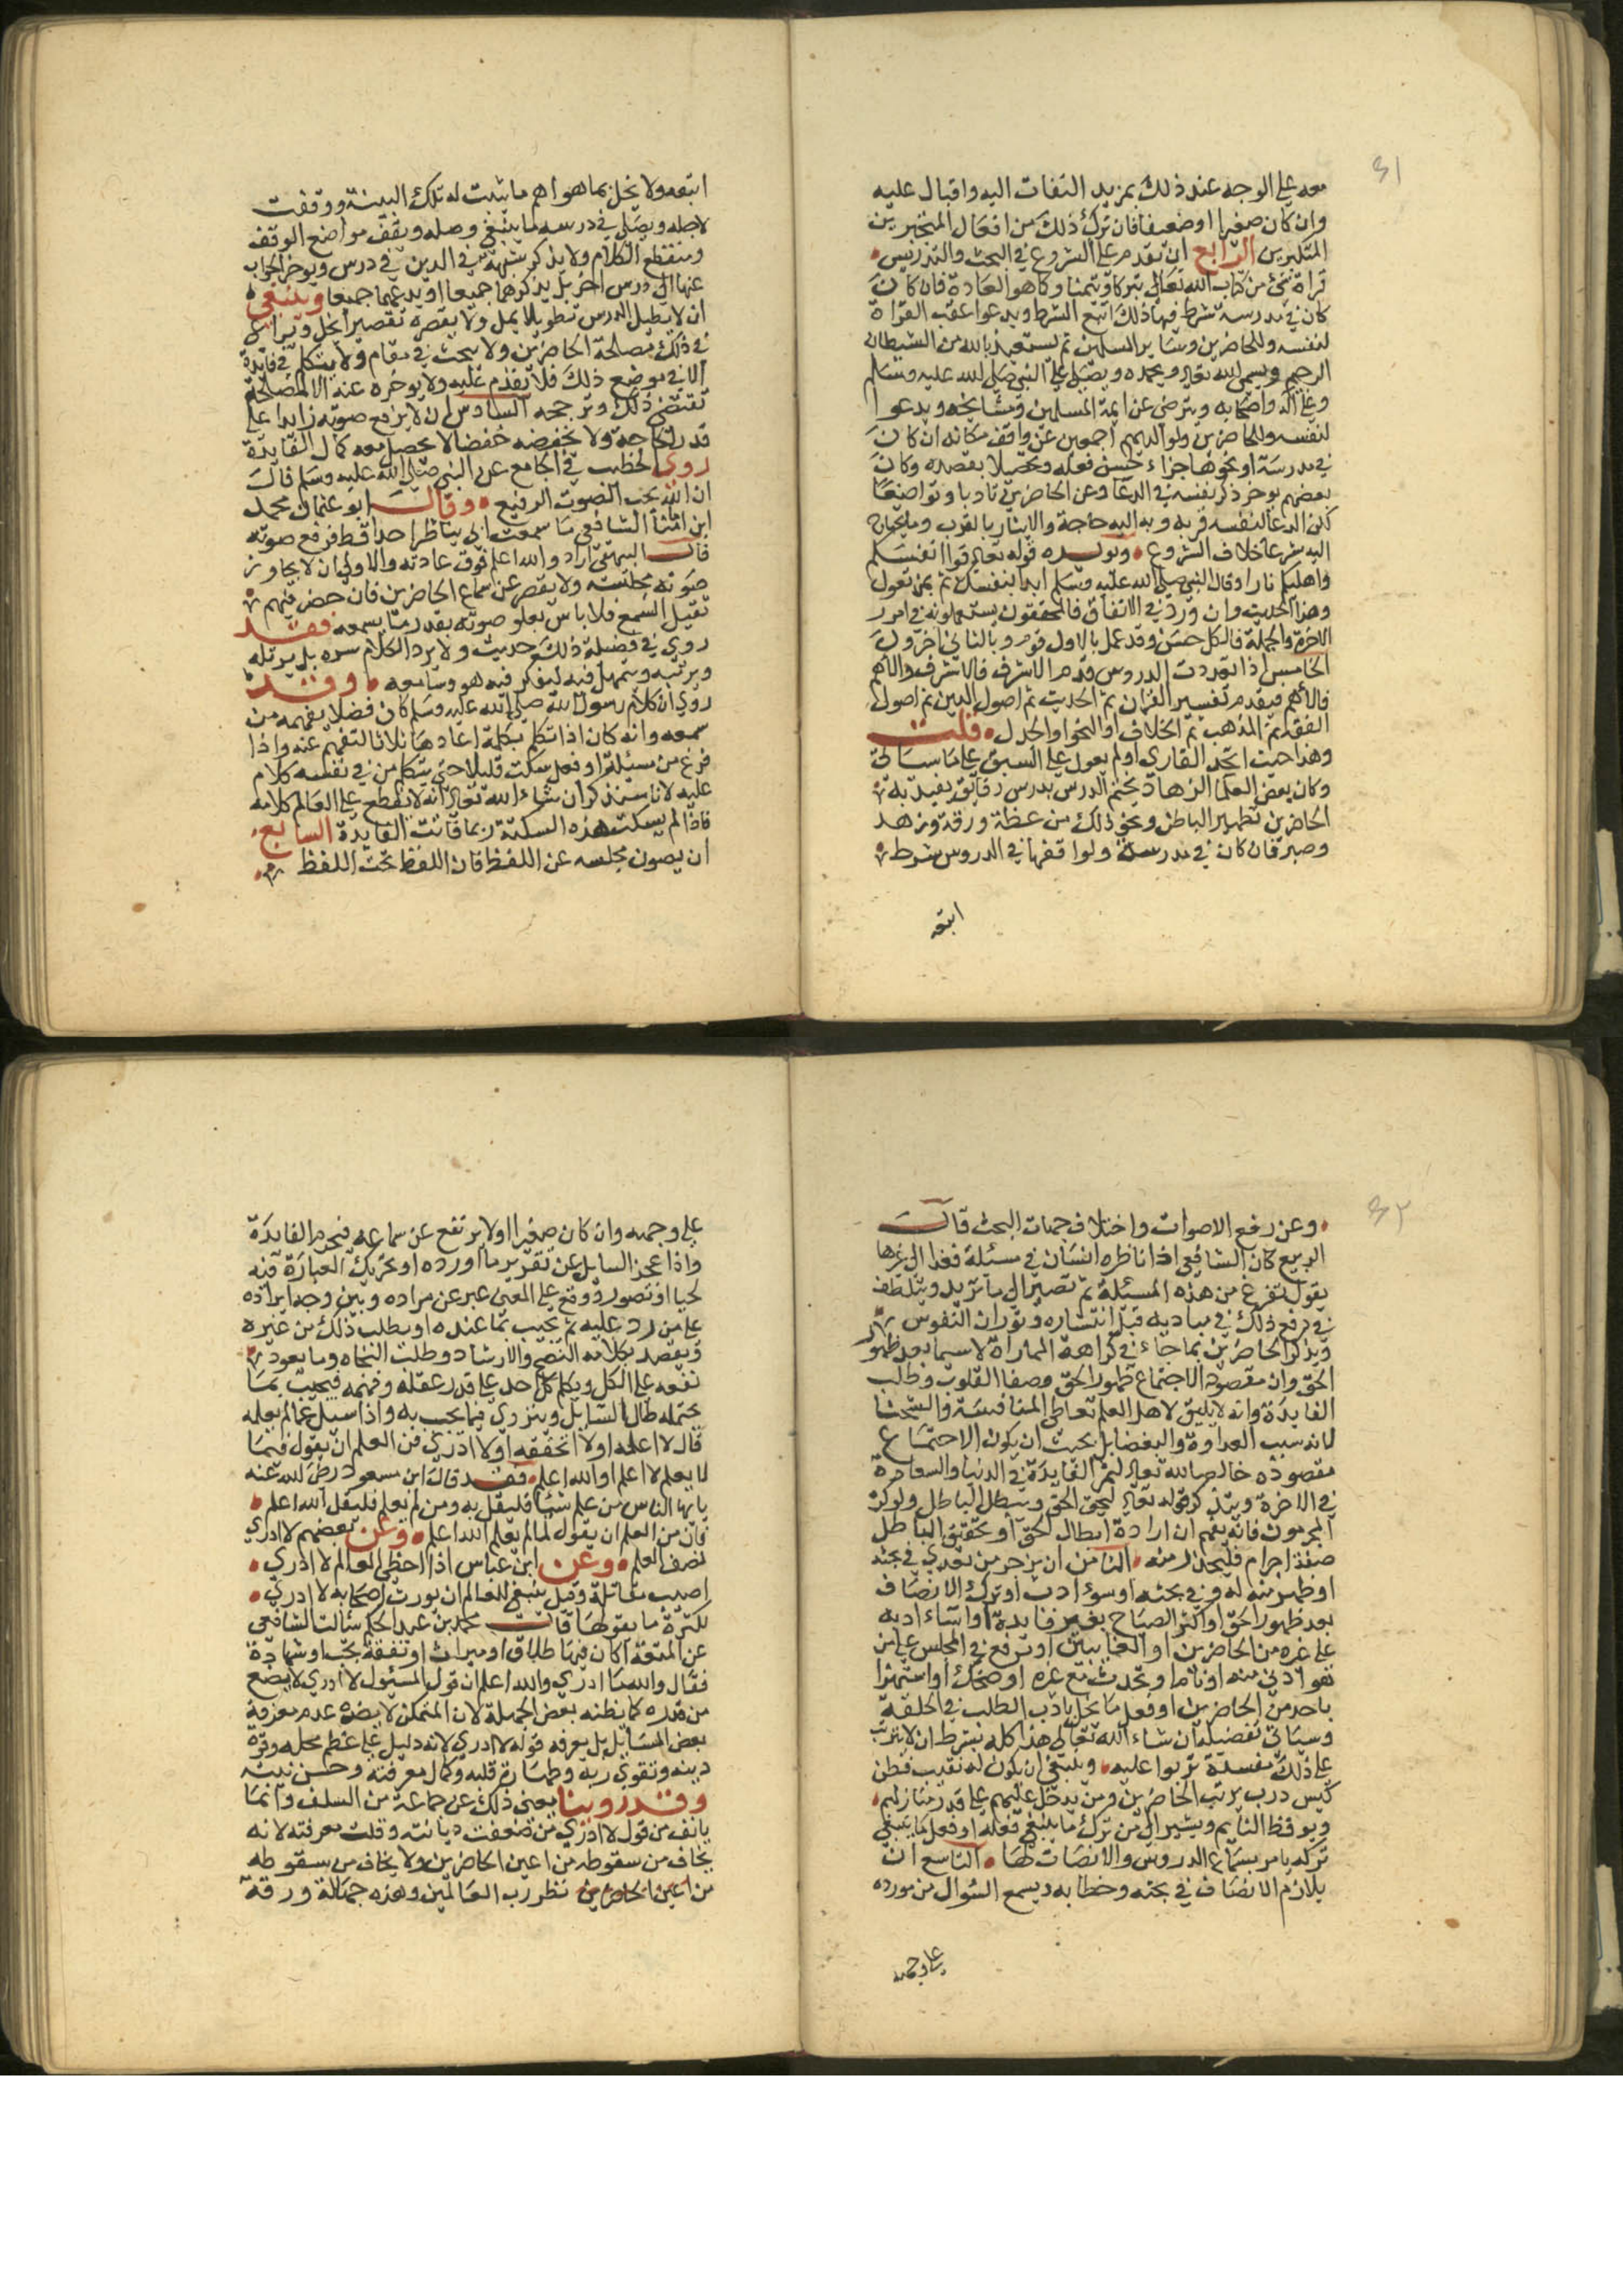 ٣١
معه على الوجه عند ذلك بمزيد التفات اليه واقبال عليه
وان كان صغيرا او ضعيفا فان ترك ذلك من افعال المتجبرين
المتكبرين الرابع ان يقدم على الشروع في البحث والتدريس
قراة شئ من كتاب الله تعالى تبركا وتيمنا وكما هو العادة فان كان
كان في مدرسة شرط فيها ذلك اتبع الشرط ويدعوا عقب القراة
لنفسه وللحاضرين وساير المسلمين ثم يستعيذ بالله من الشيطان
الرجيم ويسمى الله تعالى ويحمده ويصلى على النبي صلى الله عليه وسلم
وعلى اله واصحابه ويترضى عن ايمة المسلمين ومشايخه ويدعوا
لنفسه وللحاضرين ولوالديهم اجمعين عن واقف مكانه ان كان
في مدرسة او نحوها جزاء لحسن فعله وتحصيلا بقصده وكان
بعضهم يوخر ذكر نفسه في الدعا وعن الحاضرين تادبا وتواضعا
لكن الدعا لنفسه قربة وبه اليه حاجة والايثار بالقرب وما يحتاج
اليه شرعا خلاف المشروع ويويده قوله تعالى قوا انفسكم
واهليكم نارا وقال النبي صلى الله عليه وسلم ابدا بنفسك ثم بمن تعول
وهذا الحديث وان ورد في الانفاق فالمحققون يستعملونه في امور
الاخرة والجملة فالكل حسن وقد عمل بالاول قوم وبالثاني اخرون
الخامس اذا تعددت الدروس قدم الاشرف فالاشرف والاهم
فالاهم فيقدم تفسير القران ثم الحديث ثم اصول الدين ثم اصول
الفقه ثم المذهب ثم الخلاف او النحو او الجدل قلت
وهذا حيث اتحد القاري او لم يعول على السبق على ما سياتي
وكان بعض العلما الزهاد يختم الدرس بدرس رقايق يفيد به
الحاضرين تطهير الباطن ونحو ذلك من عظة ورقة وزهد
وصبر فان كان في مدرسة ولواقفها في الدروس شرط
اتبعه
اتبعه ولا يخل بما هو اهم ما بنيت له تلك البنية ووقفت
لاجله ويصلي في درسه ما ينبغي وصله ويقف مواضع الوقف
ومنقطع الكلام ولا يذكر شبهة في الدين في درس ويوخر الجواب
عنها الى درس اخر بل يذكرهما جميعا او يدعهما جميعا وينبغي
ان لا يطيل الدرس تطويلا يمل ولا يقصره تقصيرا يخل ويراعي
في ذلك مصلحة الحاضرين ولا يبحث في مقام ولا يتكلم في فايدة
الا في موضع ذلك فلا يقدم عليه ولا يوخره عنه الا لمصلحة
تقتضى ذلك وترجحه السادس ان لا يرفع صوته زايدا على
قدر الحاجة ولا يخفضه خفضا لا يحصل معه كمال الفايدة
روى الخطيب في الجامع عن النبي صلى الله عليه وسلم قال
ان الله يحب الصوت الرفيع وقال ابو عثمان محمد
ابن امامنا الشافعي ما سمعت ابي يناظر احدا قط فرفع صوته
قال البيهقي اراد والله اعلم فوق عادته والاولى ان لا يجاوز
صوته مجلسه ولا يقصر عن اسماع الحاضرين فان حضر فيهم
ثقيل السمع فلا باس بعلو صوته بقدر ما يسمعه فقد
روى في فضيلة ذلك حديث ولا يرد الكلام سرده بل يرتله
ويرتبه ويتمهل فيه ليفكر فيه هو وسامعه وقد
روى ان كلام رسول الله صلى الله عليه وسلم كان فصلا يفهمه من
سمعه وانه كان اذا تكلم بكلمة اعادها ثلاثا لتفهم عنه واذا
فرغ من مسئلة او فعل سكت قليلا حتى يتكلم من في نفسه كلام
عليه لانا سنذكر ان شاء الله تعالى انه لا يقطع على العالم كلامه
فاذا لم يسكت هذه السكتة ربما فاتت الفايدة السابع
ان يصون مجلسه عن اللغظ فان اللفظ تحت اللفظ
٣٢
وعن رفع الاصوات واختلاف جهات البحث قال
الربيع كان الشافعي اذا ناظره انسان في مسئلة فغدا الى غيرها
يقول نفرغ من هذه المسئلة ثم تصير الى ما تريد ويتلطف
في رفع ذلك في مباديه قبل انتشاره وثوران النفوس
ويذكر الحاضرين بما جاء في كراهة المماراة لا سيما بعد ظهور
الحق وان مقصود الاجتماع ظهور الحق وصفا القلوب وطلب
الفايدة وانه لا يليق لاهل العلم تعاطي المنافسة والشحنا
لانه سبب العداوة والبغضا بل يجب ان يكون الاجتماع
مقصوده خالصا لله تعالى ليثمر الفايدة في الدنيا والسعادة
في الاخرة ويتذكر قوله تعالى ليحق الحق ويبطل الباطل ولو كره
المجرمون فانه يفهم ان ارادة ابطال الحق او تحقيق الباطل
صفة اجرام فليحذر منه الثامن ان يزجر من تعدى في بحثه
او ظهر منه لدد في بحثه او سوء ادب او ترك الانصاف
بعد ظهور الحق او اكثر الصياح بغير فايدة او اساء ادبه
على غيره من الحاضرين او الغايبين او ترفع في المجلس على من
هو اولى منه او نام او تحدث مع غيره او ضحك او استهزا
باحد من الحاضرين او فعل ما يخل بادب الطلب في الحلقة
وسياتي تفصيله ان شاء الله تعالى هذا كله بشرط ان لا يترتب
على ذلك مفسدة تربوا عليه وينبغي ان يكون له نقيب فطن
كيس درب يرتب الحاضرين ومن يدخل عليهم على قدر منازلهم
ويوقظ النايم ويشير الى من ترك ما ينبغي فعله او فعل ما ينبغي
تركه يامر بسماع الدروس والانصات لها التاسع ان
يلازم الانصاف في بحثه وخطابه ويسمع السؤال من مورده
على وجهه
على وجهه وان كان صغيرا ولا يرتفع عن سماعه فيحرم الفايدة
واذا عجز السايل عن تقرير ما اورده او تحرير العبارة فيه
لحيا او تصور ووقع على المعنى عبر عن مراده وبين وجه ايراده
على من رد عليه ثم يجيب بما عنده او يطلب ذلك من غيره
ويقصد بكلامه النصح والارشاد وطلب النجاه وما يعود
نفعه على الكل ويكلم كل احد على قدر عقله وفهمه فيجيب بما
يحتمله حال السايل ويتروى فيما يجيب به واذا سيل عما لم يعلمه
قال لا اعلمه او لا اتحققه او لا ادري فمن العلم ان يقول فيما
لا يعلم لا اعلم او الله اعلم فقد قال ابن مسعود رضي الله عنه
يا ايها الناس من علم شيئا فليقل به ومن لم يعلم فليقل الله اعلم
فان من العلم ان يقول لما لم يعلم الله اعلم وعن بعضهم لا ادري
نصف العلم وعن ابن عباس اذا اخطى العالم لا ادري
اصيب مقاتله وقيل ينبغي للعالم ان يورث اصحابه لا ادري
لكثرة ما يقولها قال محمد بن عبد الحكم سالت الشافعي
عن المتعة اكان فيها طلاق او ميراث او نفقة تجب او شهادة
فقال والله ما ادري والله اعلم ان قول المسئول لا ادري لا يضع
من قدره كما يظنه بعض الجهلة لان المتمكن لا يضره عدم معرفة
بعض المسايل بل يعرفه قوله لا ادري لانه دليل على عظم محله وقوة
دينه وتقوى ربه وطهارة قلبه وكمال معرفته وحسن نيته
وقد روينا معنى ذلك عن جماعة من السلف وانما
يانف من قول لا ادري من ضعفت ديانته وقلت معرفته لانه
يخاف من سقوطه من اعين الحاضرين ولا يخاف من سقوطه
من اعين الحاضرين من نظر رب العالمين وهذه جهالة ورقة